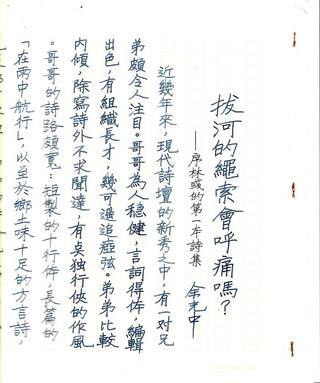 拔河的繩索會呼痛嗎?
——序林彧的第一本詩集
余光中
近幾年來,現代詩壇的新秀之中,有一對兄
弟頗令人注目。哥哥為人穩健,言詞得体,編輯
出色,有組織長才,幾可遥追瘂弦。弟弟比較
內傾,除寫詩外不求聞達,有臭独行俠的作風
。哥哥的詩路頗寬:短製的十行体,長篇的
「在雨中航行」,以至於鄉土味十足的方言詩,